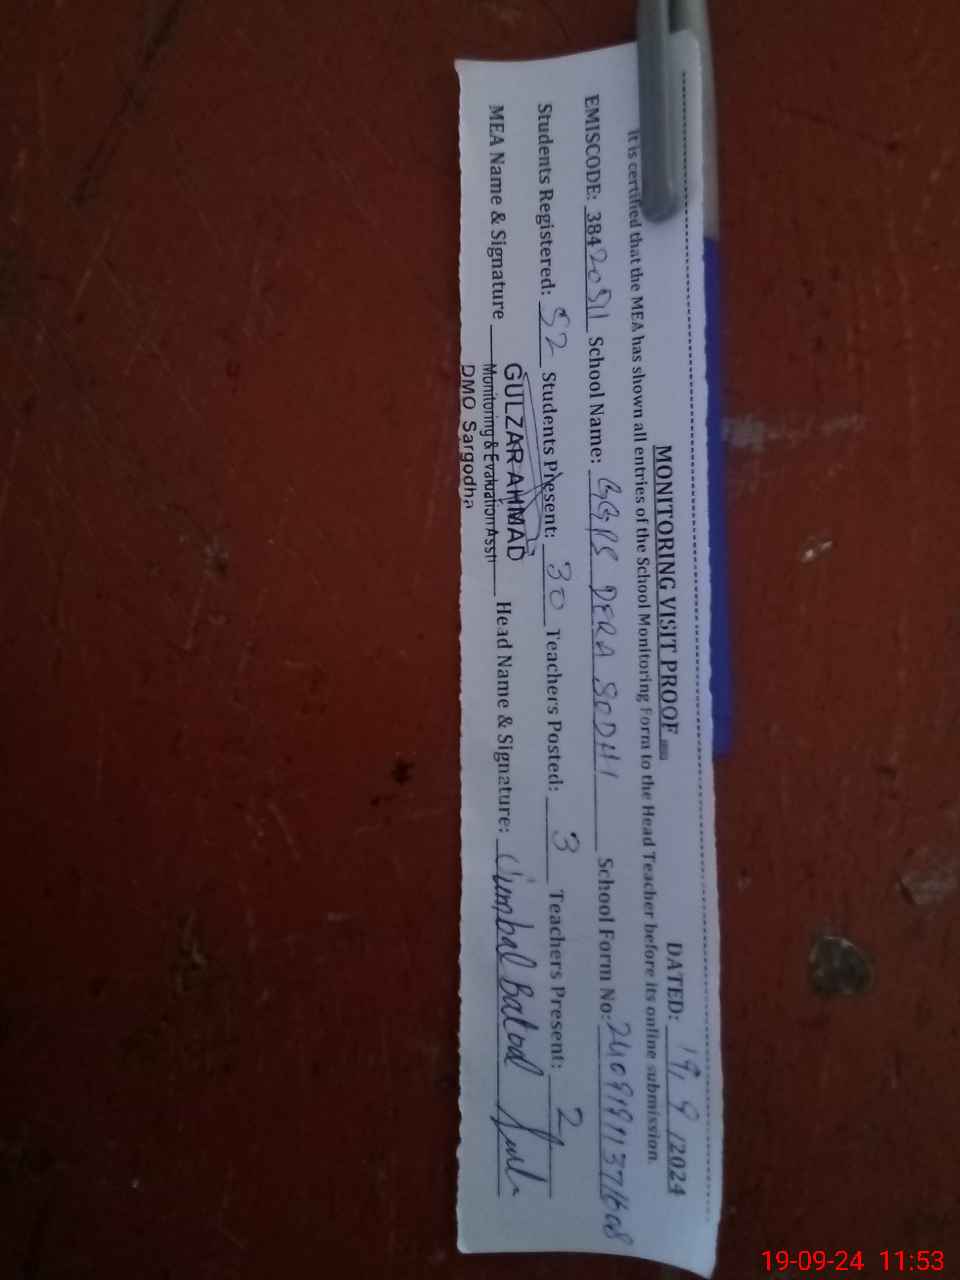 MONITORING VISIT PROOF
DATED: 19, 9 /2024
It is certified that the MEA has shown all entries of the School Monitoring Form to the Head Teacher before its online submission.
EMISCODE: 38420511 School Name: GGPS DERA SODHI School Form No:
Students Registered: 52 Students Present: 30 Teachers Posted: 3 Teachers Present: 2
MEA Name & Signature Head Name & Signature:
GULZAR AHMAD
Monitoring & Evaluation Asstt
DMO Sargodha
19-09-24 11:53